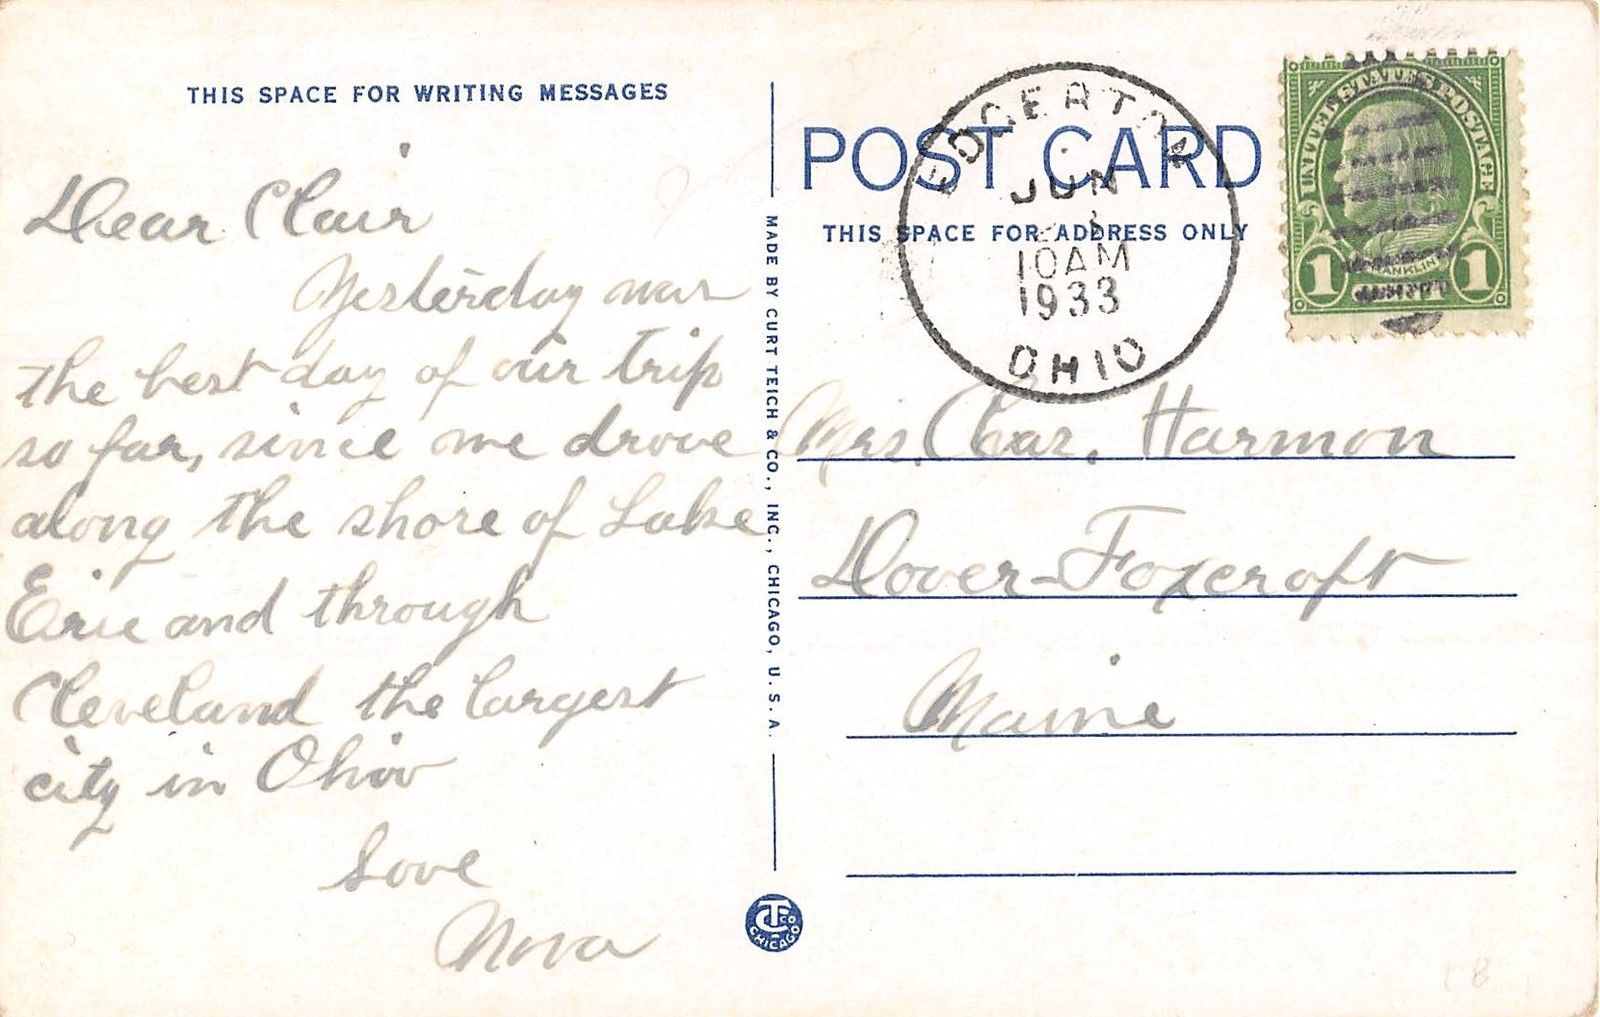 THIS SPACE FOR WRITING MESSAGES
Dear Clair
Yesterday was
the best day of our trip
so far, since we drove
along the shore of Lake
Erie and through
Cleveland the largest
city in Ohio
Love
Nova
MADE BY CURT TEICH & CO., INC., CHICAGO, U. S. A.
CT CO
CHICAGO
POST CARD
THIS SPACE FOR ADDRESS ONLY
EDGERTON
JUN
10AM
1933
OHIO
UNITED STATES POSTAGE
FRANKLIN
1 1
Mrs. Chas. Harmon
Dover-Foxcroft
Maine